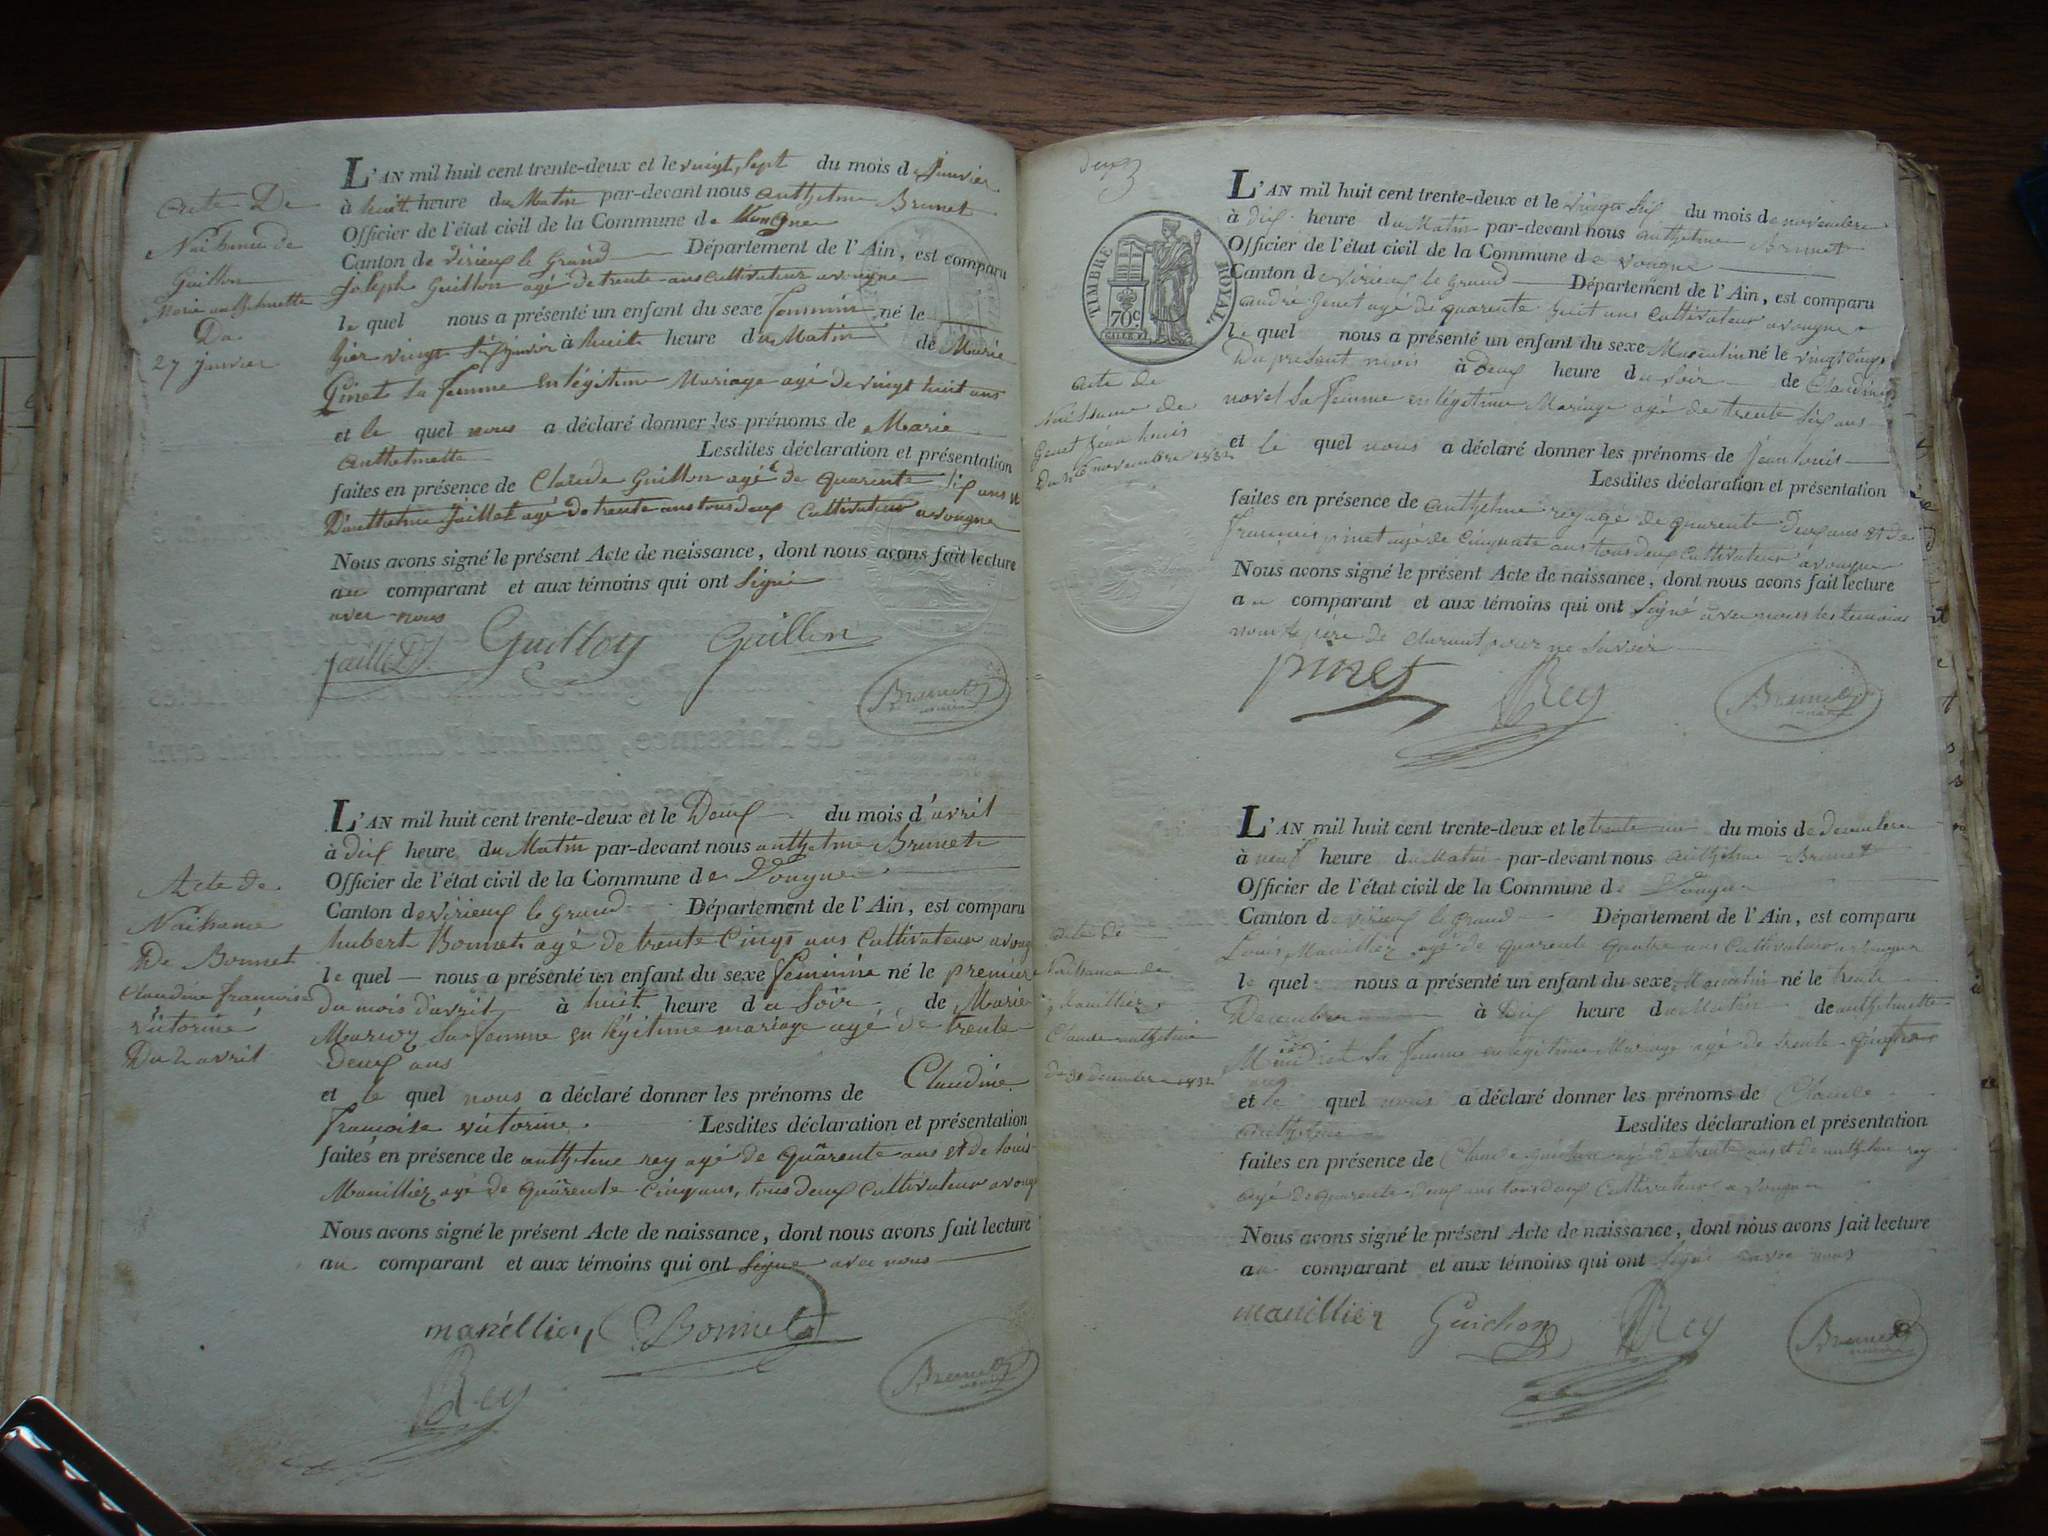 Acte De
Naissance de
Guillon
Marie anthelmette
Du
27 janvier
L'AN mil huit cent trente-deux et le vingt sept du mois de Janvier
à huit heure du Matin par-devant nous anthelme Brunet
Officier de l'état civil de la Commune de Vongne
Canton de virieux le grand Département de l'Ain, est comparu
joseph Guillon agé de trente ans cultivateur a vongne
le quel nous a présenté un enfant du sexe feminin né le
hier vingt six janvier à huit heure du Matin de Marie
Ginet sa femme en légitime Mariage agé de vingt huit ans
et le quel nous a déclaré donner les prénoms de Marie
anthelmette Lesdites déclaration et présentation
faites en présence de Claude Guillon agé de quarente six ans et
D'anthelme Jaillet agé de trente ans tous deux cultivateur a vongne
Nous avons signé le présent Acte de naissance, dont nous avons fait lecture
au comparant et aux témoins qui ont Signé
avec nous
Jaillet Guilloy Guillon
Brunet
maire
Acte de
Naissance
De Bonnet
Claudine francoise
victorine
Du 2 avril
L'AN mil huit cent trente-deux et le Deux du mois d'avril
à dix heure du Matin par-devant nous anthelme Brunet
Officier de l'état civil de la Commune de Vongne
Canton de virieux le grand Département de l'Ain, est comparu
hubert Bonnet agé de trente cinq ans cultivateur a vong
le quel nous a présenté un enfant du sexe feminin né le premier
du mois d'avril à huit heure du Soir de Marie
sa femme en légitime mariage agé de trente
Deux ans
et le quel nous a déclaré donner les prénoms de Claudine
francoise victorine Lesdites déclaration et présentation
faites en présence de anthelme rey agé de quarente ans et de louis
Manillier agé de quarente cinq ans, tous deux cultivateur a vong
Nous avons signé le présent Acte de naissance, dont nous avons fait lecture
au comparant et aux témoins qui ont Signé avec nous
manillier Bonnet
Rey
Brunet
maire
deux
TIMBRE ROYAL
70c
acte de
Naissance de
Genet jean louis
Du 26 novembre 1832
L'AN mil huit cent trente-deux et le vingt six du mois de novembre
à dix heure du Matin par-devant nous anthelme Brunet
Officier de l'état civil de la Commune de vongne
Canton de virieux le grand Département de l'Ain, est comparu
andré genet agé de quarente huit ans cultivateur a vongne
le quel nous a présenté un enfant du sexe Masculin né le vingt cinq
Du présent mois à deux heure du soir de Claudine
novel sa femme en légitime Mariage agé de trente six ans
et le quel nous a déclaré donner les prénoms de Jean louis
Lesdites déclaration et présentation
faites en présence de anthelme rey agé de quarente deux ans et de
francois pinet agé de cinquate ans tous deux cultivateur a vongne
Nous avons signé le présent Acte de naissance, dont nous avons fait lecture
au comparant et aux témoins qui ont Signé avec nous les temoins
non le père de clarant pour ne savoir
pinet Rey
Brunet
maire
acte de
Naissance de
Manillier
Claude anthelme
du 31 decembre 1832
L'AN mil huit cent trente-deux et le trente un du mois de decembre
à neuf heure du Matin par-devant nous anthelme Brunet
Officier de l'état civil de la Commune de Vongne
Canton de virieux le grand Département de l'Ain, est comparu
Louis Manillier agé de quarente quatre ans cultivateur a vongne
le quel nous a présenté un enfant du sexe Masculin né le trente
Decembre à heure du Matin de anthelmette
sa femme en légitime Mariage agé de trente
ans
et le quel nous a déclaré donner les prénoms de Claude
anthelme Lesdites déclaration et présentation
faites en présence de Claude guichon agé de trente ans et de anthelme rey
agé de quarente deux ans tous deux cultivateur a vongne
Nous avons signé le présent Acte de naissance, dont nous avons fait lecture
au comparant et aux témoins qui ont signé avec nous
manillier Guichon Rey
Brunet
maire